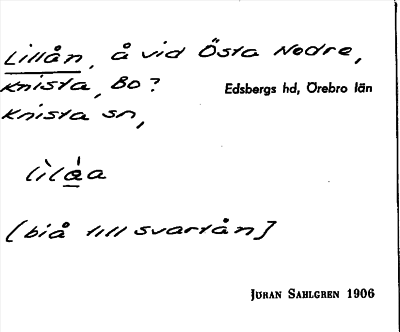 Lillån, å vid Östa Nedre,
Knista, Bo?
Edsbergs hd, Örebro län
Knista sn,
lìlȧ̀a
[biå till svartån]
JÖRAN SAHLGREN 1906